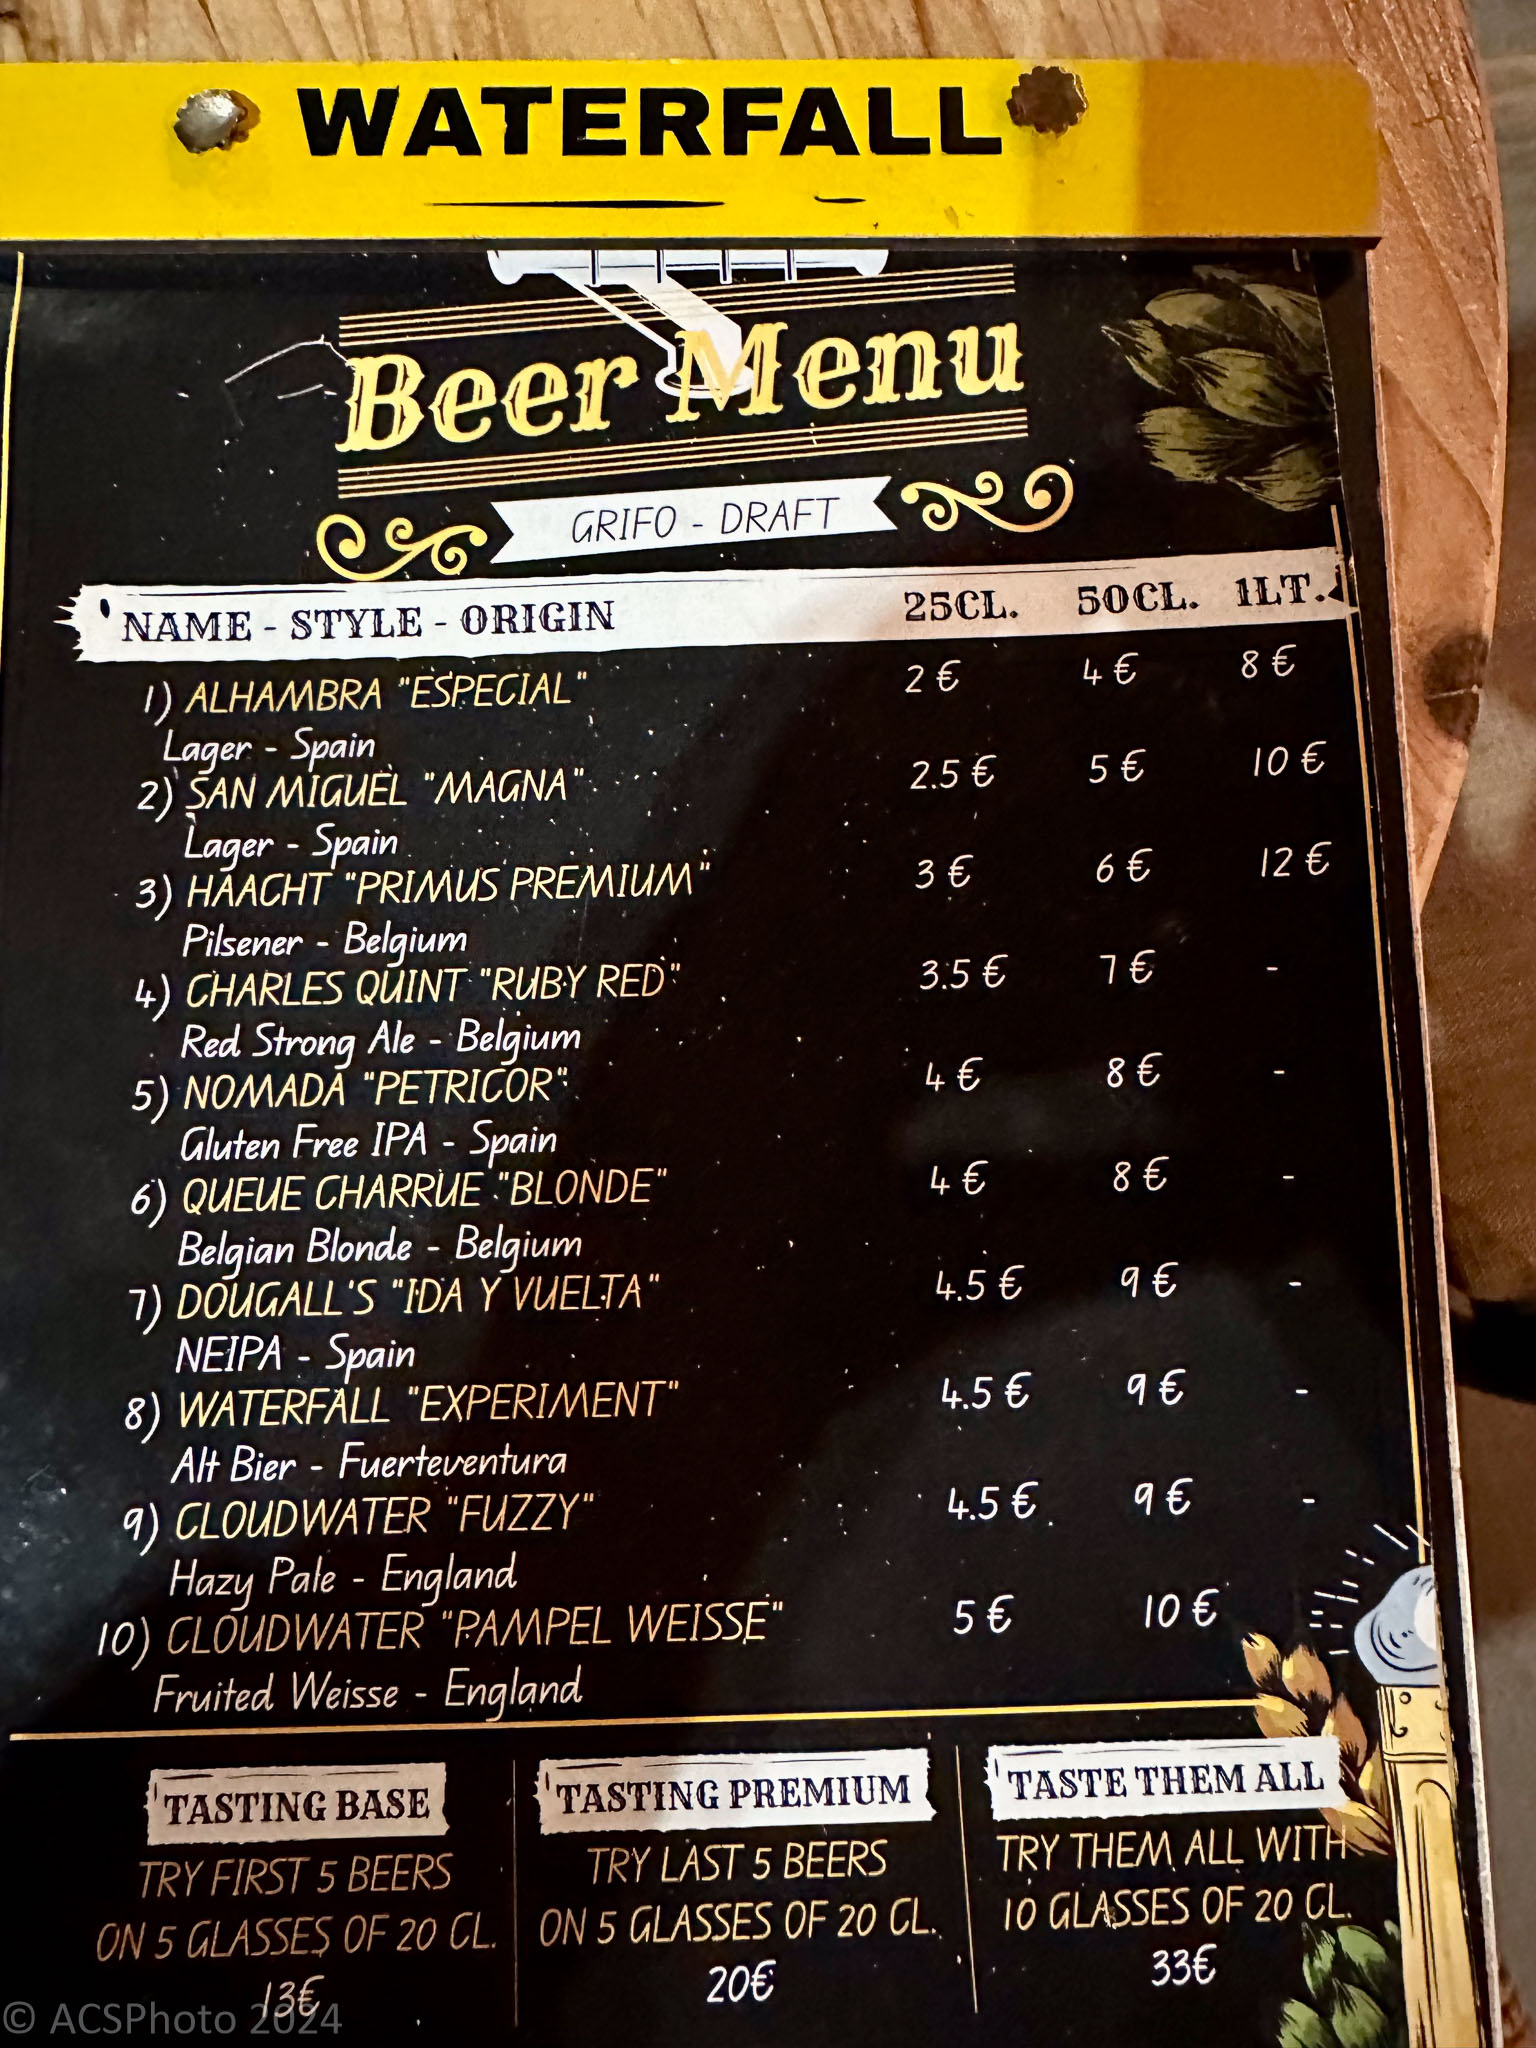 WATERFALL
Beer Menu
GRIFO - DRAFT
NAME - STYLE - ORIGIN 25CL. 50CL. 1LT.
1) ALHAMBRA "ESPECIAL" 2 € 4 € 8 €
Lager - Spain
2) SAN MIGUEL "MAGNA" 2.5 € 5 € 10 €
Lager - Spain
3) HAACHT "PRIMUS PREMIUM" 3 € 6 € 12 €
Pilsener - Belgium
4) CHARLES QUINT "RUBY RED" 3.5 € 7 € -
Red Strong Ale - Belgium
5) NOMADA "PETRICOR" 4 € 8 € -
Gluten Free IPA - Spain
6) QUEUE CHARRUE "BLONDE" 4 € 8 € -
Belgian Blonde - Belgium
7) DOUGALL'S "IDA Y VUELTA" 4.5 € 9 € -
NEIPA - Spain
8) WATERFALL "EXPERIMENT" 4.5 € 9 € -
Alt Bier - Fuerteventura
9) CLOUDWATER "FUZZY" 4.5 € 9 € -
Hazy Pale - England
10) CLOUDWATER "PAMPEL WEISSE" 5 € 10 €
Fruited Weisse - England
TASTING BASE
TRY FIRST 5 BEERS
ON 5 GLASSES OF 20 CL.
13€
TASTING PREMIUM
TRY LAST 5 BEERS
ON 5 GLASSES OF 20 CL.
20€
TASTE THEM ALL
TRY THEM ALL WITH
10 GLASSES OF 20 CL.
33€
© ACSPhoto 2024